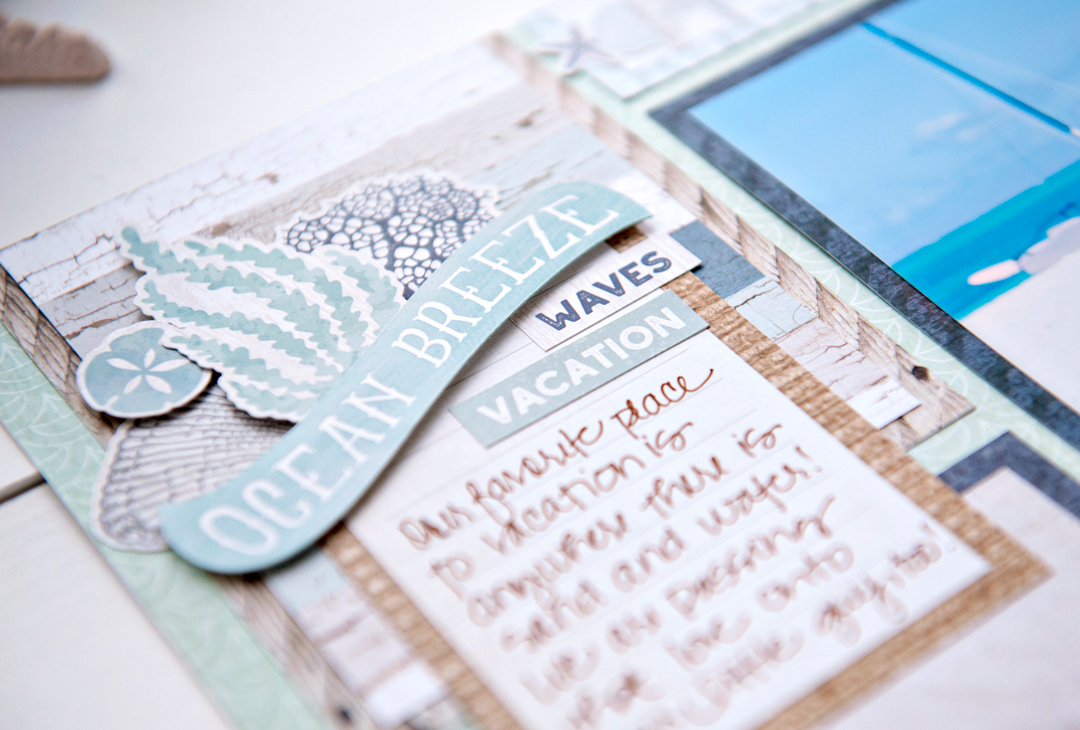 OCEAN BREEZE
WAVES
VACATION
our favorite place
to vacation is
anywhere there is
sand and water!
We are passing
that love onto
our little guy, too!